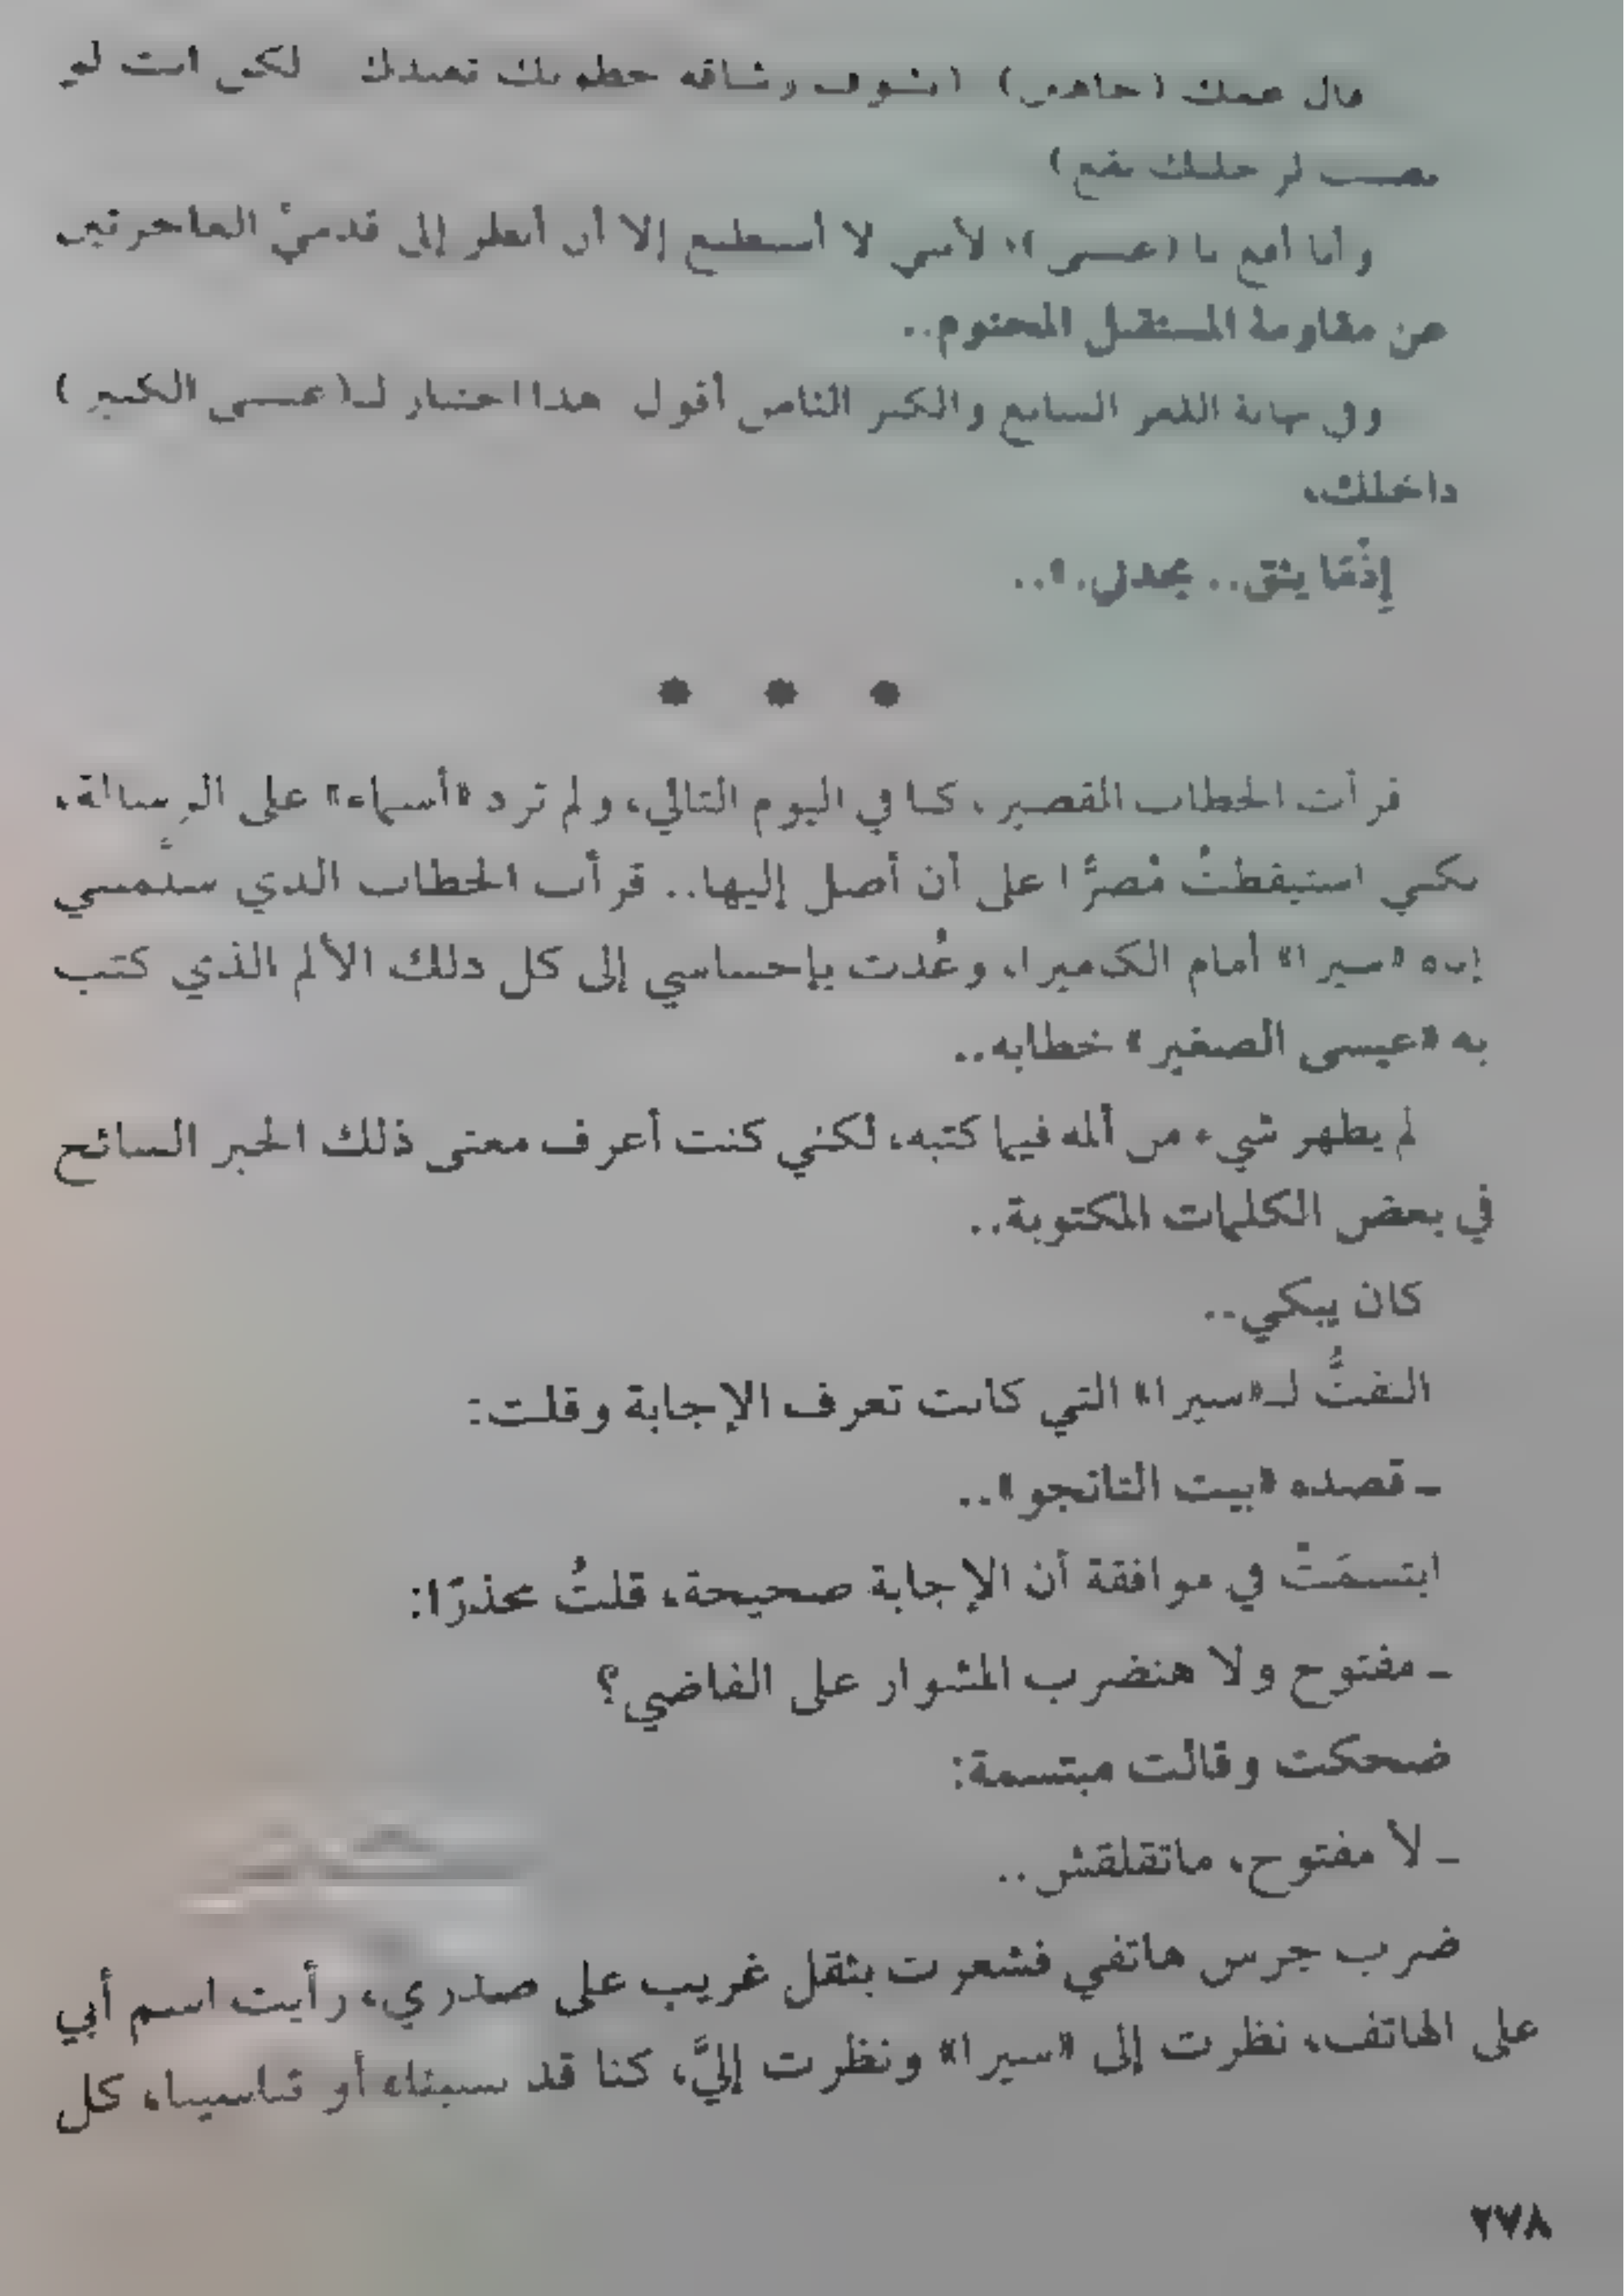 قال عمك (جاهين) (بشوف رشاقة خطوتك تعبدك لكن انت لو
بصيت لرجليك تقع)
وأنا أقع يا (عيسى)؛ لأنني لا أستطيع إلا أن أنظر إلى قدميَّ العاجزتين
عن مقاومة المستقبل المحتوم..
وفي نهاية اللغز السابع والكنز الثامن أقول هذا اختبار لـ(عيسى الكبير)
داخلك،
يثق.. بجدتي.»..
قرأت الخطاب القصير، كنا في اليوم التالي، ولم ترد «أسماء» على الرسالة،
لكني استيقظتُ مُصرًّا على أن أصل إليها.. قرأت الخطاب الذي ستمسي
«سيرا» أمام الكاميرا، وعُدت بإحساسي إلى كل ذلك الألم الذي كتب
به «عيسى الصغير» خطابه..
لم يظهر شيء من ألمه فيما كتبه، لكني كنت أعرف معنى ذلك الحبر السائح
في بعض الكلمات المكتوبة..
كان يبكي..
التفتُّ لـ«سيرا» التي كانت تعرف الإجابة وقلت:
ـ قصده «بيت التانجو»..
ابتسمَتْ في موافقة أن الإجابة صحيحة، قلتُ محذرًا:
ـ مفتوح ولا هنضرب المشوار على الفاضي؟
ضحكت وقالت مبتسمة:
ـ لأ مفتوح، ماتقلقش..
ضرب جرس هاتفي فشعرت بثقل غريب على صدري، رأيت اسم أبي
على الهاتف، نظرت إلى «سيرا» ونظرت إليَّ، كنا قد نسيناه أو تناسينا، كل
٢٧٨